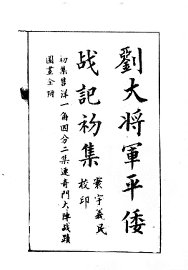 劉大将軍平倭
战記初集
寰宇義民
校印
初集售洋一角四分二集連奇門大陣战蹟
圖畫全册